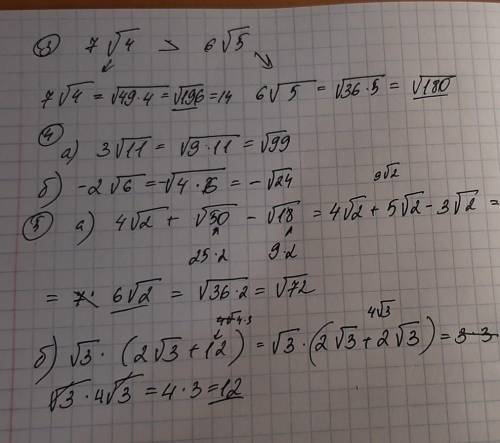 ③ 7√4 > 6√5
7√4 = √49·4 = √196 = 14 6√5 = √36·5 = √180
④
а) 3√11 = √9·11 = √99
б) -2√6 = -√4·6 = -√24
9√2
⑤ а) 4√2 + √50 - √18 = 4√2 + 5√2 - 3√2 =
25·2 9·2
= 6√2 = √36·2 = √72
√4·3 4√3
б) √3 · (2√3 + 12) = √3 · (2√3 + 2√3) = 3·3
√3 · 4√3 = 4·3 = 12